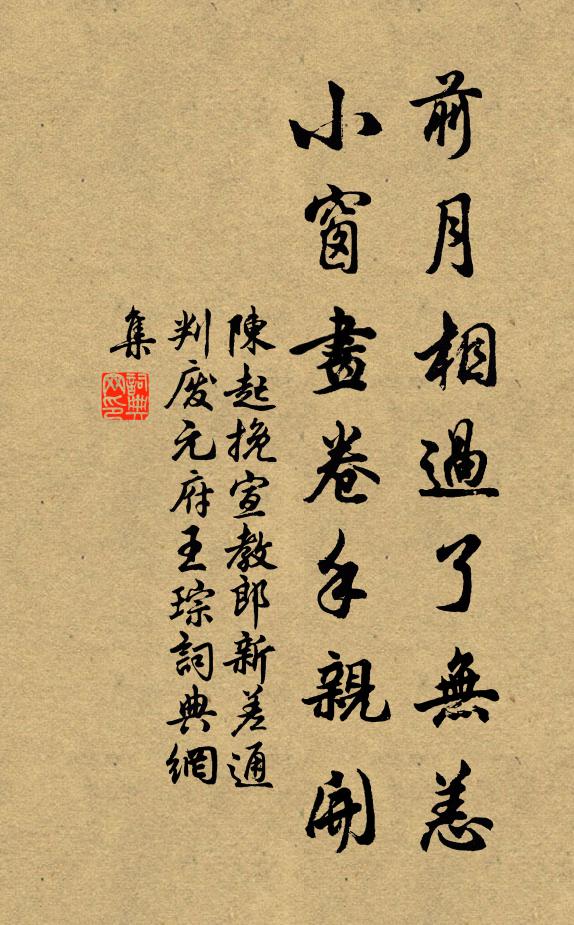 前月相過了無恙
小窗畫卷手親開
陳起挽宣教郎新差通
判慶元府王琮詞典網
集
詞典
网印